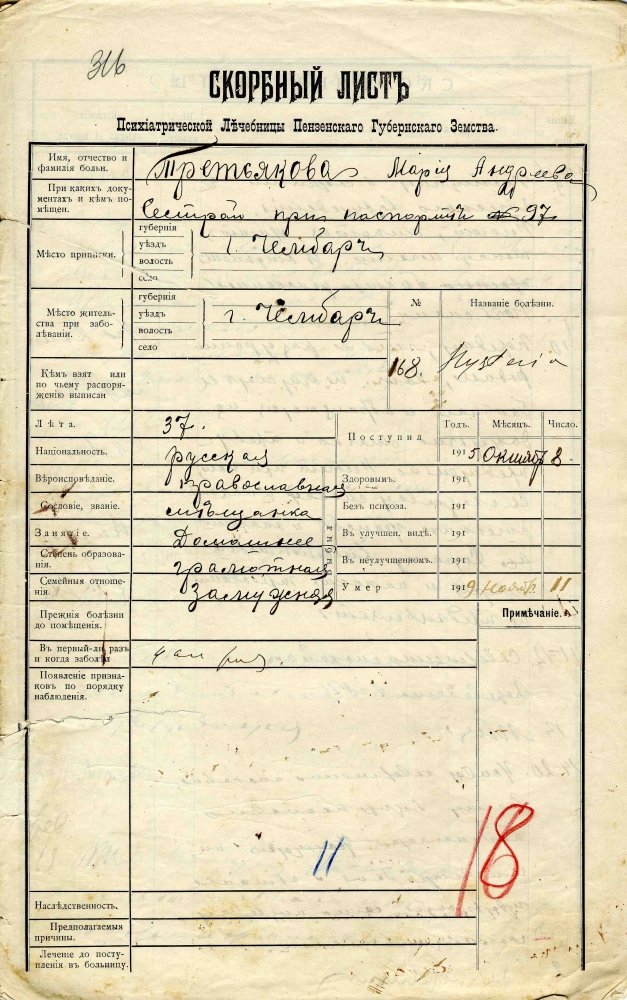 316
СКОРБНЫЙ ЛИСТЪ
Психіатрической Лѣчебницы Пензенскаго Губернскаго Земства.
Имя, отчество и фамилія больн. Третьякова Марія Андреева
При какихъ документахъ и кѣмъ помѣщен. Сестрою при паспортѣ № 97
Мѣсто приписки. губернія
уѣздъ г. Чембаръ
волость
село
Мѣсто жительства при заболѣваніи. губернія
уѣздъ г. Чембаръ
волость
село
№ Названіе болѣзни.
Кѣмъ взятъ или по чьему распоряженію выписан
168. Hysteria
Лѣта. 37.
Поступил Годъ. Мѣсяцъ. Число.
Національность. русская 1915 Октябр 8.
Вѣроисповѣданіе. православная Здоровымъ. 191
Сословіе, званіе. мѣщанка Безъ психоза. 191
Занятіе. Домашнее Въ улучшен. видѣ. 191
Степень образованія. грамотная Въ неулучшенномъ. 191
Семейныя отношенія. Замужняя Умер 1919 Ноябр. 11
Выбылъ
Прежнія болѣзни до помѣщенія. Примѣчаніе.
Въ первый-ли разъ и когда заболѣл
Появленіе признаковъ по порядку наблюденія.
11
18
Наслѣдственность.
Предполагаемыя причины.
Лечѣніе до поступленія въ больницу.